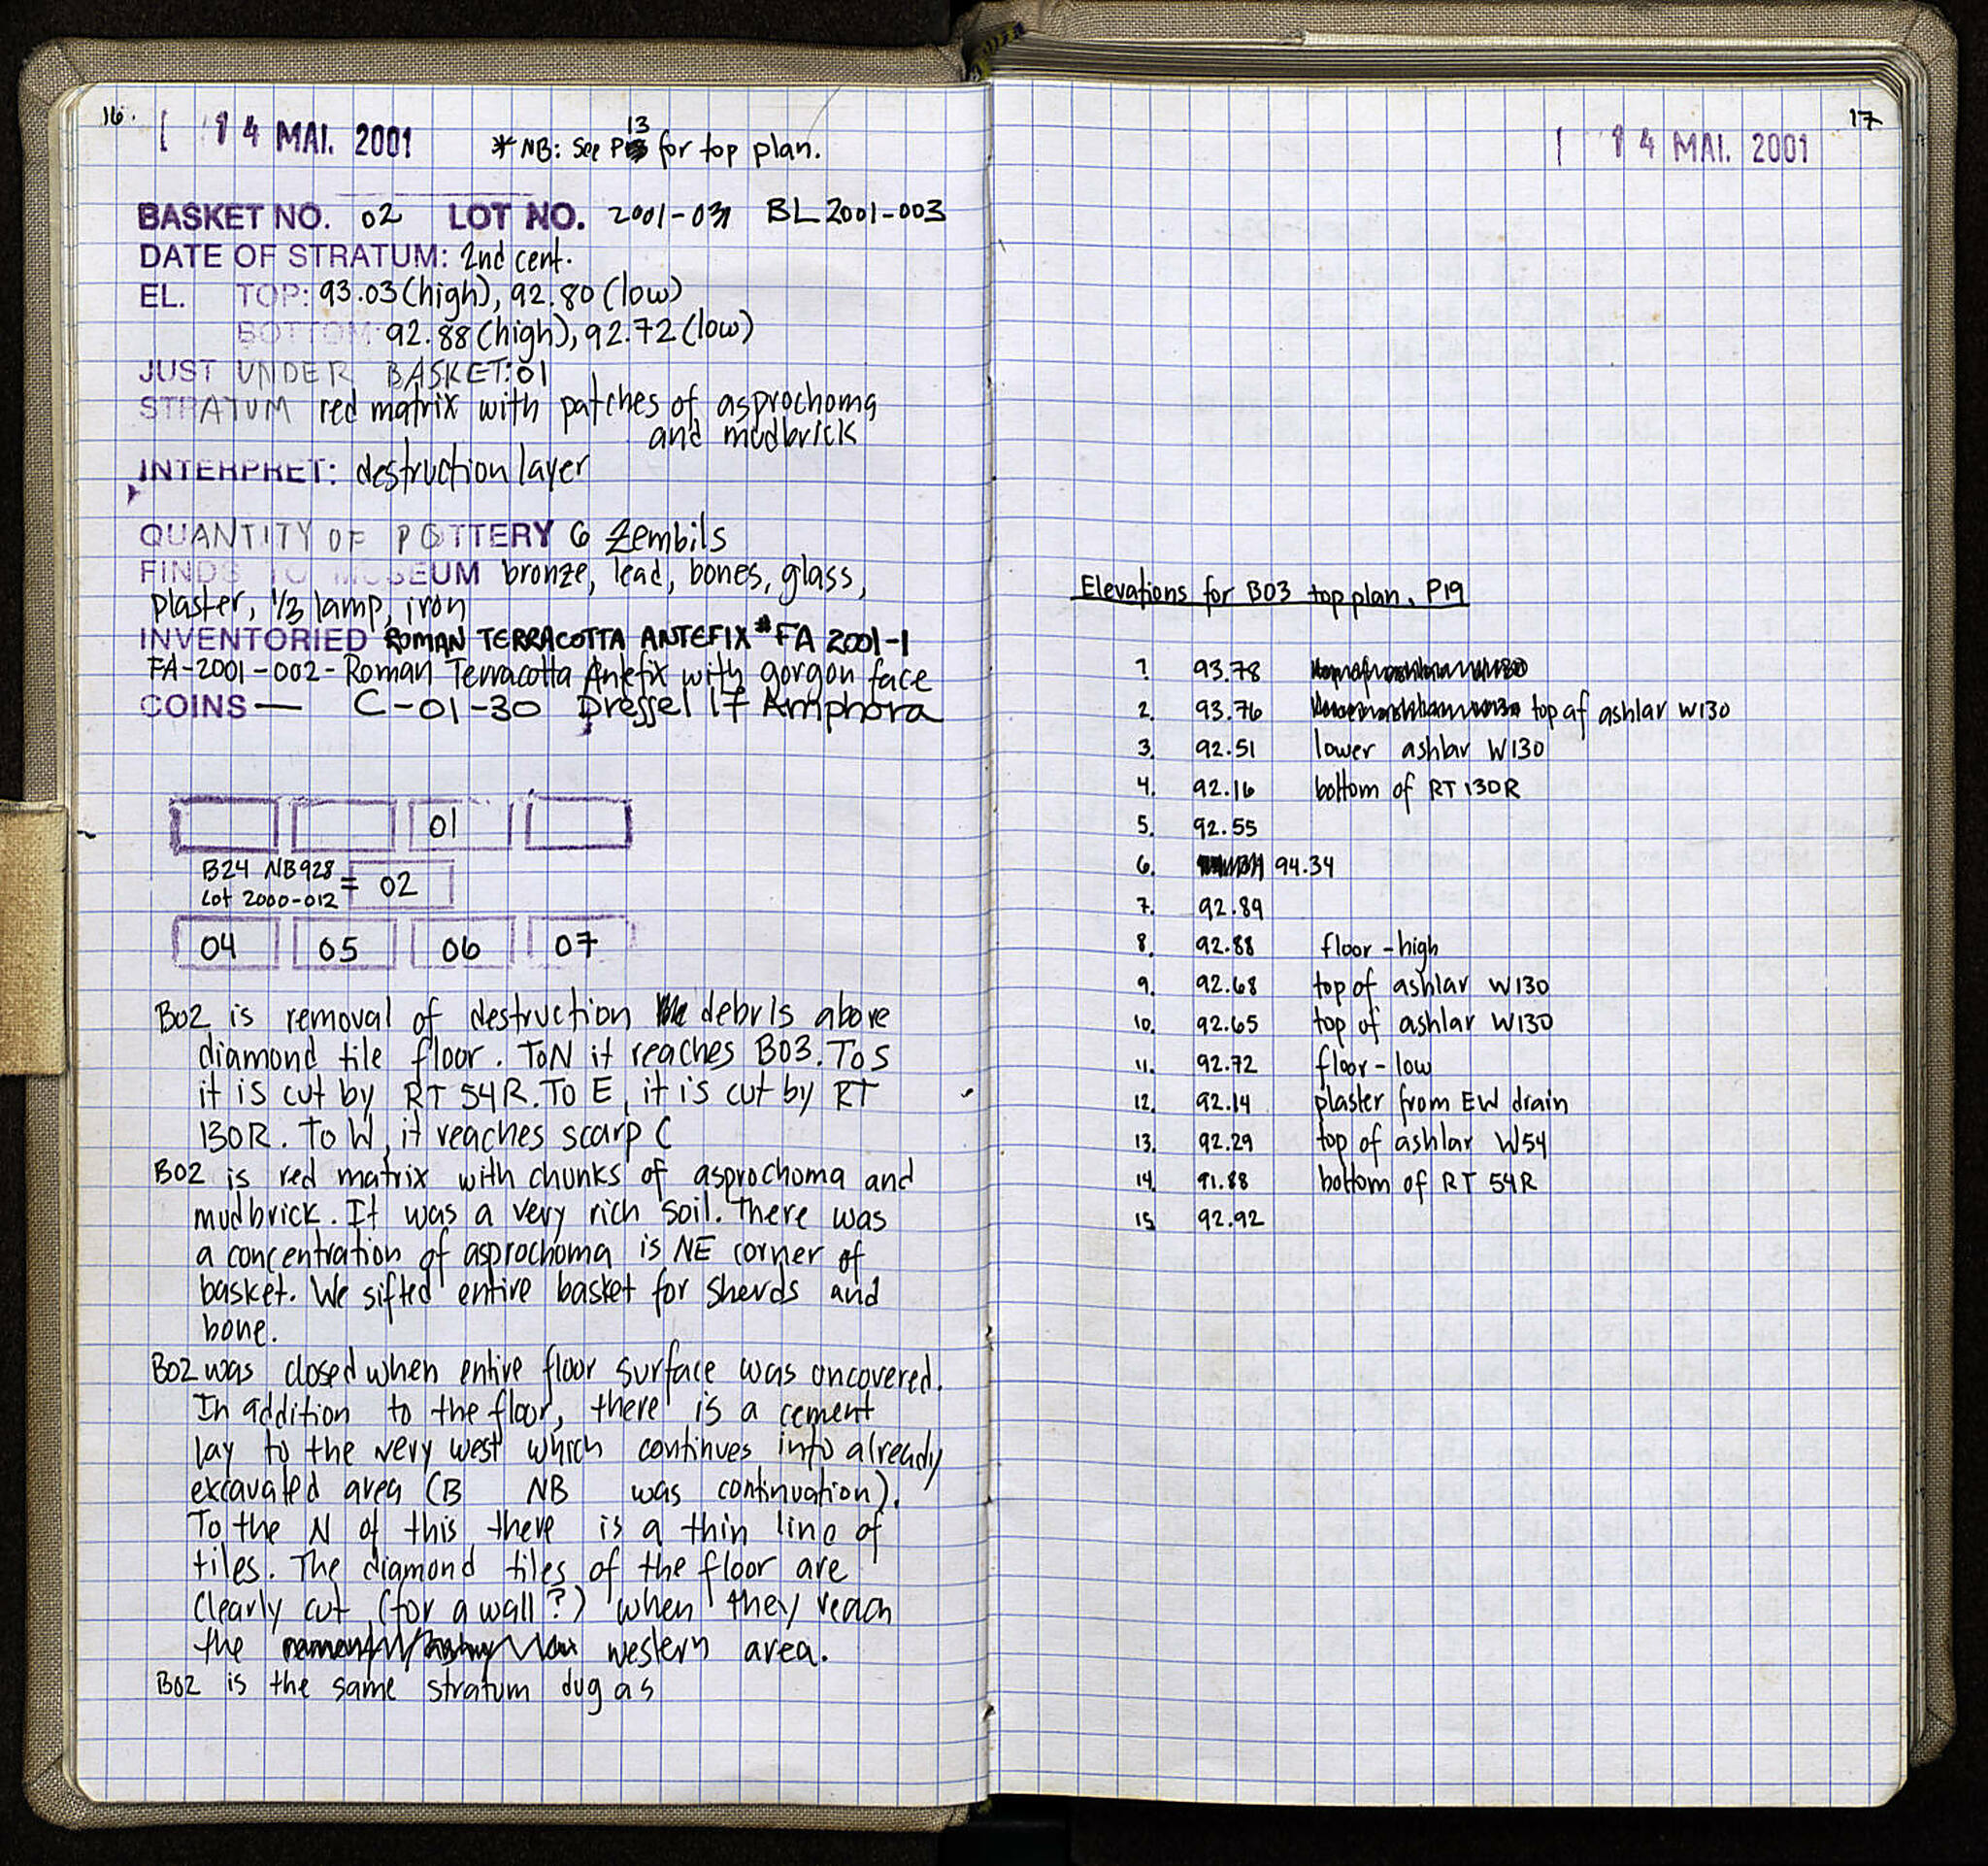 16.
14 MAI. 2001
* NB: See P 13 for top plan.
BASKET NO. 02 LOT NO. 2001-031 BL 2001-003
DATE OF STRATUM: 2nd cent.
EL. TOP: 93.03 (high), 92.80 (low)
BOTTOM 92.88 (high), 92.72 (low)
JUST UNDER BASKET: 01
STRATUM red matrix with patches of asprochoma
and mudbrick
INTERPRET: destruction layer
QUANTITY OF POTTERY 6 Zembils
FINDS TO MUSEUM bronze, lead, bones, glass,
plaster, 1/3 lamp, iron
INVENTORIED ROMAN TERRACOTTA ANTEFIX # FA 2001-1
FA-2001-002- Roman Terracotta Antefix with gorgon face
COINS — C-01-30 Dressel 17 Amphora
01
B24 NB928
Lot 2000-012 = 02
04 05 06 07
B02 is removal of destruction debris above
diamond tile floor. To N it reaches B03. To S
it is cut by RT 54R. To E, it is cut by RT
130R. To W, it reaches scarp C
B02 is red matrix with chunks of asprochoma and
mudbrick. It was a very rich soil. There was
a concentration of asprochoma is NE corner of
basket. We sifted entire basket for sherds and
bone.
B02 was closed when entire floor surface was uncovered.
In addition to the floor, there is a cement
lay to the very west which continues into already
excavated area (B NB was continuation).
To the N of this there is a thin line of
tiles. The diamond tiles of the floor are
clearly cut (for a wall?) when they reach
the western area.
B02 is the same stratum dug as
17
14 MAI. 2001
Elevations for B03 top plan, P19
1. 93.78
2. 93.76 top of ashlar W130
3. 92.51 lower ashlar W130
4. 92.16 bottom of RT 130R
5. 92.55
6. 94.34
7. 92.89
8. 92.88 floor - high
9. 92.68 top of ashlar W130
10. 92.65 top of ashlar W130
11. 92.72 floor - low
12. 92.14 plaster from EW drain
13. 92.29 top of ashlar W54
14. 91.88 bottom of RT 54R
15 92.92